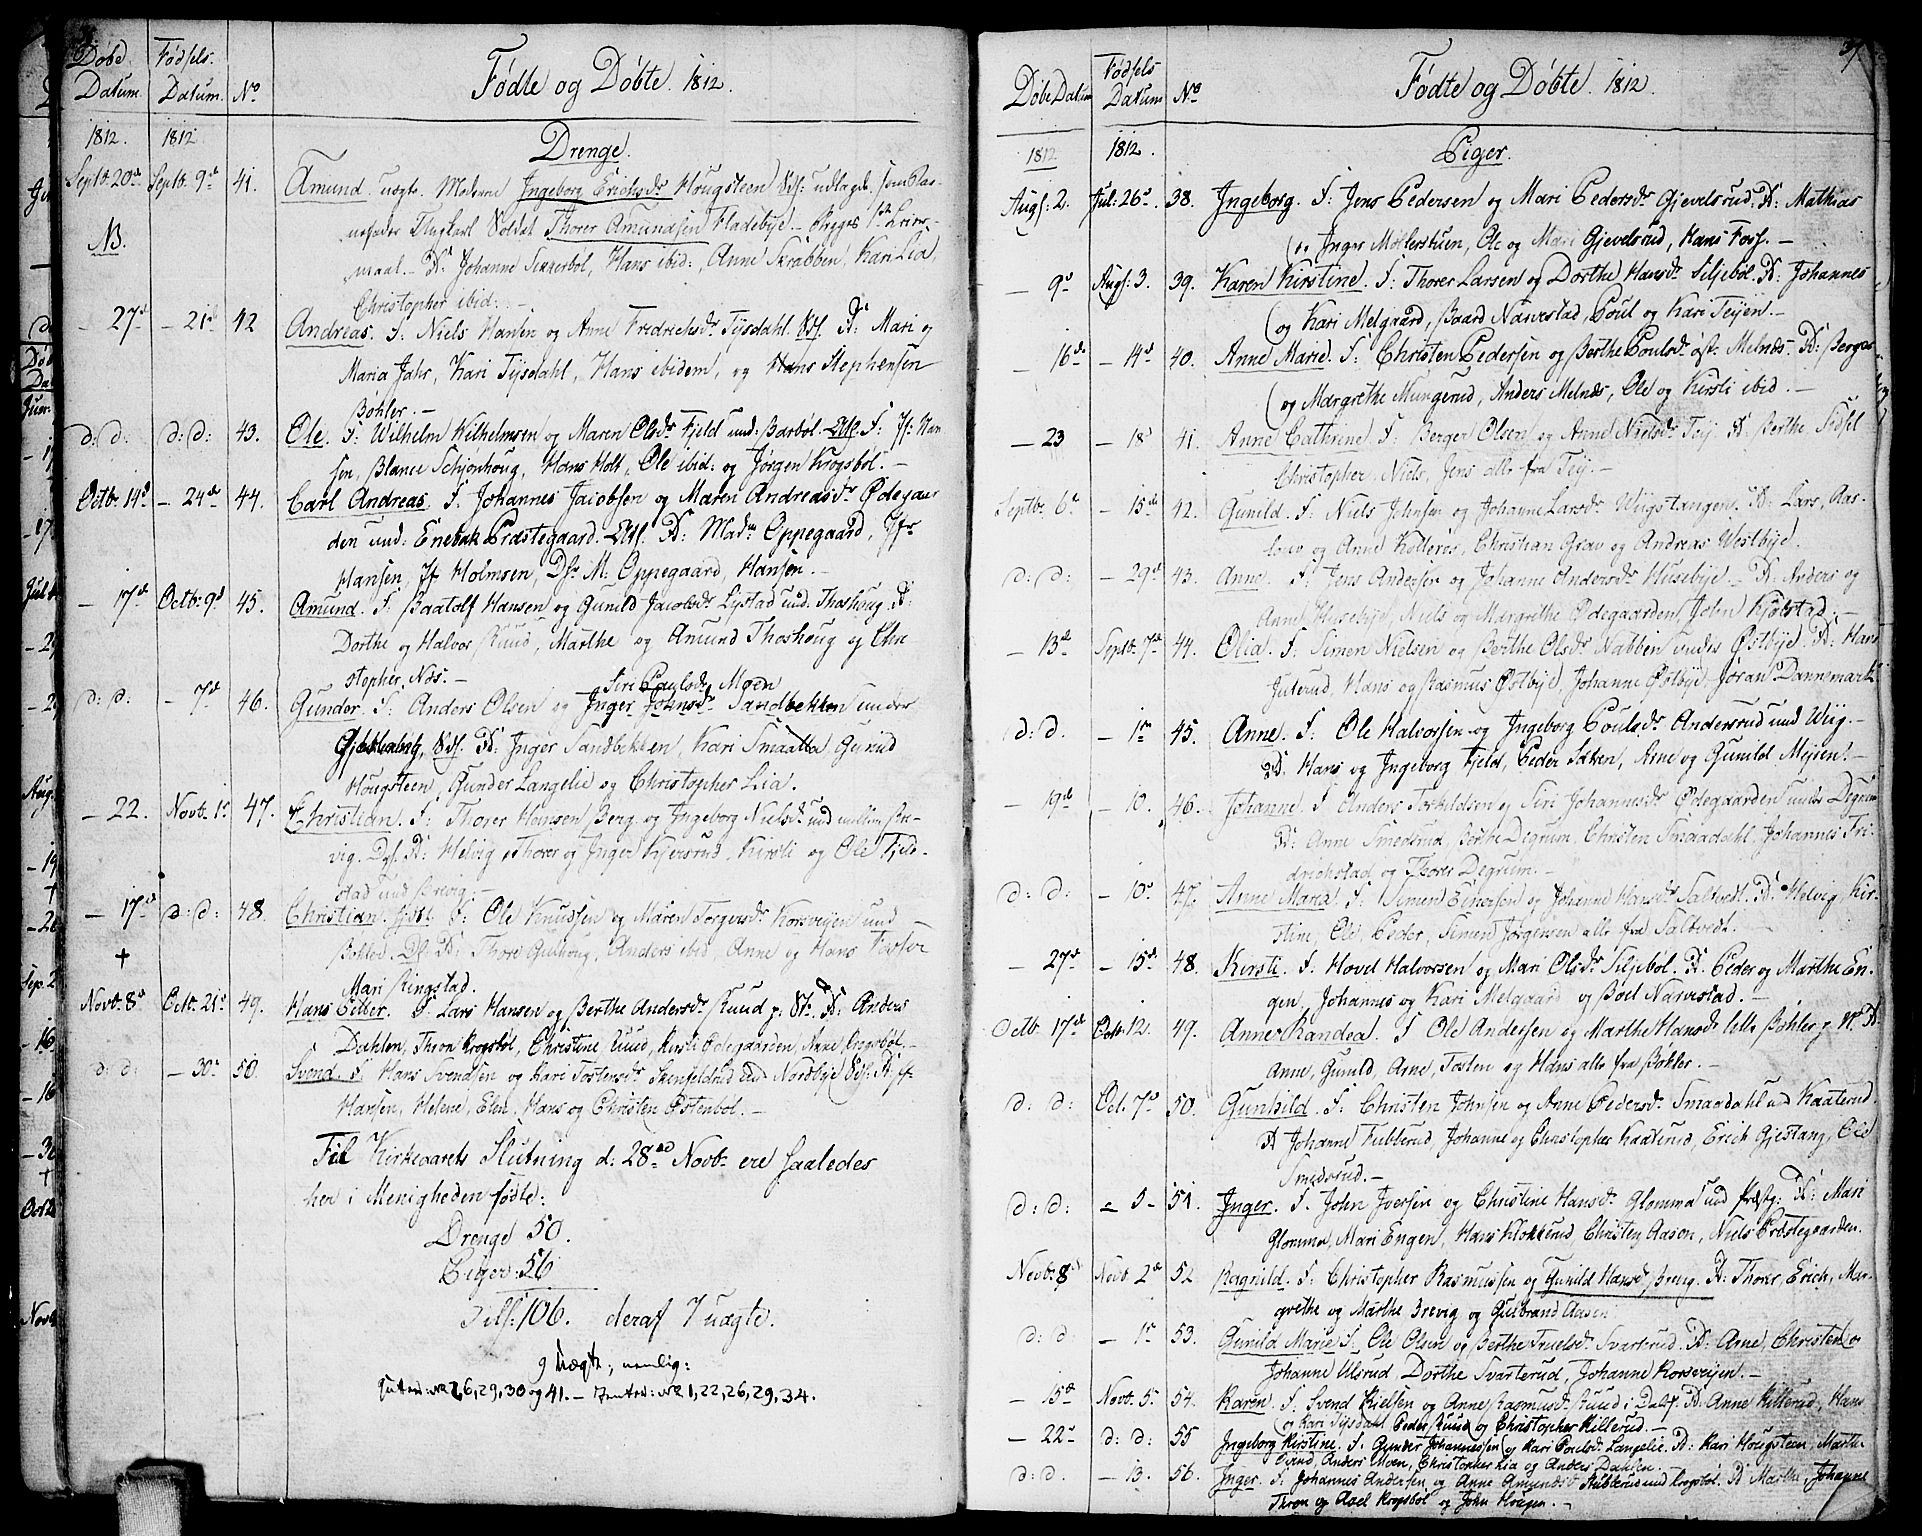 Døbe Datum. Fødsels Datum. No Fødte og Døbte. 1812.
1812. 1812. Drenge.
Septb. 20de Septb. 9de 41. Amund uægte. Moderen Ingeborg Erichsdr Hougsteen udlagde som Bar-
NB. nefader Ungkarl Soldat Thorer Amundsen Fladebye - begges 1ste Leiers-
maal. - Johanne Sikkerbøl, Hans ibid:, Anne Skrabben, Kari Lia,
Christopher ibid: -
- 27de - 21de 42 Andreas. F: Niels Hansen og Anne Fredrichsdr Tysdahl. Mari og
Maria Jahr, Kari Tysdahl, Hans ibidem, og Hans Stephensen
Bøhler. -
d: d: d: d: 43. Ole. F: Wilhelm Wilhelmsen og Maren Olsdr Fjeld und: Barbøl. F: Jfr: Han
sen, Blance Schjønhoug, Hans Holt, Ole ibid: og Jørgen Krogsbøl. -
Octb. 14de - 24de 44. Carl Andreas. F: Johannes Jacobsen og Maren Andreasdr Ødegaar
den und: Enebak Præstegaard. Madm Oppegaard, Jfr
Hansen, Jfr Holmsen, M: Oppegaard, Hansen. -
- 17de Octb. 9de 45. Amund. F: Baatolf Hansen og Gunild Jacobsdr Lystad und. Thoshoug
Dorthe og Halvor Ruud, Marthe og Amund Thoshoug og Chri
stopher, Næs. -
Siri Paulsdr Moen
d: d. - 7de 46. Gunder. F: Anders Olsen og Inger Johnsdr Sandbekken under
Inger Sandbekken, Kari Smaatta Gurud
Hougsteen, Gunder Langelie og Christopher Lia.
- 22. Novb. 1. 47. Christian. F: Thorer Hansen Berg og Ingeborg Nielsdr
vig. Helvig, Thorer og Inger Kjersrud, Kirsti og Ole Fjeld-
stad und Brevig. -
- 17de d: d: 48. Christian. F: Ole Knudsen og Maren Torgersdr Korsveyen und
Bøhler. Anders ibid, Anne og Hans
Mari Ringstad.
Novb. 8de Octb. 21. 49. Hans Peter. F: Lars Hansen og Berthe Andersdr Ruud Anders
Dahlen, Thron Krogsbøl, Christine Ruud, Kirsti Ødegaarden, Anne Krogsbøl. -
d: d: - 30. 50. Svend. F: Hans Svendsen og Kari Tostensdr und Nordbye
Hansen, Helene, Elen, Hans og Christen Østenbøl. -
Til Kirkeaarets Slutning d: 28de Novb. ere saaledes
her i Menigheden fødte:
Drenge 50.
Piger: 56
Tils: 106. deraf 7 uægte.
9 Uægte, nemlig:
Gutter: No 2, 6, 29, 30 og 41. - Jenter: No 1, 22, 26, 29, 34.
37
Døbe Datum Fødsels Datum No Fødte og Døbte. 1812.
1812 1812. Piger.
Augs: 2. Jul: 26. 38. Ingeborg. F: Jens Pedersen og Mari Pedersdr Gjevelsrud. Mathias
og Inger Møllerstuen, Ole og Mari Gjevelsrud, Hans Foss. -
- 9. Augs: 3. 39. Karen Kirstine. F: Thorer Larsen og Dorthe Hansdr Siljebøl. Johannes
og Kari Melgaard, Baard Narvestad, Poul og Kari Teijen. -
- 16de - 14de 40. Anne Marie. F: Christen Pedersen og Berthe Poulsdr øst. Melnæs. Berger
og Margrethe Mungerud, Anders Melnæs, Ole og Kirsti ibid. -
- 23 - 18. 41. Anne Cathrine. F: Berger Olsen og Anne Nielsdr Teij. Berthe Sidsel
Christopher, Niels, Jens alle fra Teij. -
Septbr. 6te - 15de 42. Gunild. F: Niels Johnsen og Johanne Larsdr Wiigstangen. Lars, Ras-
og Anne Kollerøs, Christian Grav og Andreas Westbye.
d: d: - 29de 43. Anne. F: Jens Andersen og Johanne Andersdr Husebye. Anders og
Anne Husebye, Niels og Margrethe Ødegaarden, John Kjølstad. -
- 13de Septb. 7de 44. Olia. F: Simen Nielsen og Berthe Olsdr Nabben under Østbye. Hans
Juterud, Hans og Rasmus Østbye, Johanne Østbye, Jøran Dannemark
d: d. - 1. 45. Anne. F: Ole Halvorsen og Ingeborg Poulsdr Andersrud und Wiig. -
Hans og Ingeborg Fjeld, Peder Sætten, Arne og Gunild Mejen. -
- 19de - 10. 46. Johanne. F: Anders Torkildsen og Siri Johannesdr Ødegaarden under Degrum
Anne Smedsrud, Berthe Degrum, Christen Smaadahl, Johannes Fri-
drichstad og Thorer Degrum. -
d: d: - 10. 47. Anne Maria. F: Simen Einersen og Johanne Hansdr Saltvedt. Helvig Kir-
stine, Ole, Peder, Simen Jørgensen alle fra Saltvedt.
- 27de - 15de 48. Kirsti. F: Hovel Halvorsen og Mari Olsdr Siljebøl. Peder og Marthe En-
gen, Johannes og Kari Melgaard og Boel Narvestad. -
Octb. 17de Octb. 12. 49. Anne Randea. F: Ole Andersen og Marthe Hansdr lille Bøhler
Anne, Gunild, Arne, Tosten og Hans alle fra Bøhler. -
d: d: Oct. 7de 50. Gunhild. F: Christen Johnsen og Anne Pedersdr Smaadahl und Kaaterud
Johanne Tubberud, Johanne og Christopher Kaaterud, Erich Gjestang, Ole
Smedsrud. -
d: d: - 5 - 51. Inger. F: John Iversen og Christine Hansdr Glomma und Præstg: Mari
Glomma, Mari Engen, Hans Klokkerud, Christen Aasen, Niels Præstegaarden.
Novb: 8de Novb. 2de 52 Ragnild. F: Christopher Rasmussen og Gunild Hansdr Brevig. Thorer, Erich, Mar-
grethe og Marthe Brevig og Gulbrand Aasen
d: d: - 1. 53. Gunild Marie F: Ole Olsen og Berthe Truelsdr Svarterud. Arne, Christen og
Johanne Ulsrud, Dorthe Svarterud, Johanne Korsveijen. -
- 15de Novb. 5. 54. Karen. F: Svend Kielsen og Anne Rasmusdr Ruud i Dal. Anne Killerud, Hans
og Kari Tysdahl, Peder Ruud og Christopher Killerud. -
- 22. d: d: 55 Ingeborg Kirstine. F: Gunder Johannessen og Kari Poulsdr Langelie. Kari Hougsteen, Marthe
Anders Moen, Christopher Lia og Anders Dahlen.
d: d. - 13. 56. Inger. F: Johannes Andersen og Anne Amundsdr Stubberud und Krogsbøl. Marthe, Johanne
Thron og Axel Krogsbøl og John Hougen. -